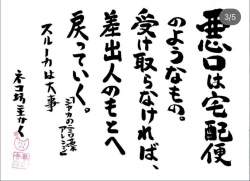 悪口は宅配便
のようなもの。
受け取らなければ、
差出人のもとへ
戻っていく。
「シャカの言葉
アレンジ」
スルーカは大事
ネコ坊主かく
3/5